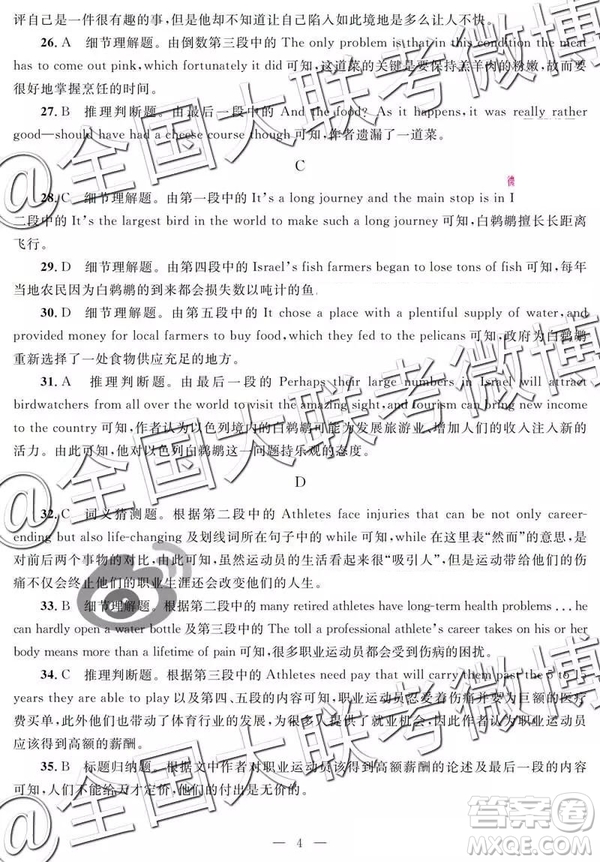 评自己是一件很有趣的事,但是不知道让自己陷入如此境地是多么让人不快。
26. A 细节理解题。由倒数第三段中的 The only problem is that in this condition the meat
has to come out pink, which fortunately it did 可知,这道菜的关键是要保持羔羊肉的粉嫩,故而要
很好地掌握烹饪的时间。
27. B 推理判断题。由最后一段中的 And the food? As it happens, it was really rather
good—should have had a cheese course though 可知,作者遗漏了一道菜。
C
28. C 细节理解题。由第一段中的 It's a long journey and the main stop is in I
二段中的 It's the largest bird in the world to make such a long journey 可知,白鹈鹕擅长长距离
飞行。
29. D 细节理解题。由第四段中的 Israel's fish farmers began to lose tons of fish 可知,每年
当地农民因为白鹈鹕的到来都会损失数以吨计的鱼.
30. D 细节理解题。由第五段中的 It chose a place with a plentiful supply of water, and
provided money for local farmers to buy food, which they fed to the pelicans 可知,政府为白鹈鹕
重新选择了一处食物供应充足的地方。
31. A 推理判断题。由最后一段中的 Perhaps their large numbers in Israel will attract
birdwatchers from all over the world to visit the amazing sight, and tourism can bring new income
to the country 可知,作者认为以色列境内的白鹈鹕可为发展旅游业、增加人们的收入注入新的
活力。由此可知,他对以色列白鹈鹕这一问题持乐观的态度。
D
32. C 词义猜测题。根据第二段中的 Athletes face injuries that can be not only career-
ending but also life-changing 及划线词所在句子中的 while 可知,while 在这里表“然而”的意思,是
对前后两个事物的对比,由此可知,虽然运动员的生活看起来很“吸引人”,但是运动带给他们的伤
痛不仅会终止他们的职业生涯还会改变他们的人生。
33. B 细节理解题。根据第二段中的 many retired athletes have long-term health problems ... he
can hardly open a water bottle 及第三段中的 The toll a professional athlete's career takes on his or her
body means more than a lifetime of pain 可知,很多职业运动员都会受到伤病的困扰。
34. C 推理判断题。根据第三段中的 Athletes need pay that will carry them past the 5 to 15
years they are able to play 以及第四、五段的内容可知,职业运动员忍受着伤痛并要为巨额的医疗
费买单,此外他们还带动了体育行业的发展,为很多人提供了就业机会,因此,作者认为职业运动员
应该得到高额的薪酬。
35. B 标题归纳题。根据文中作者对职业运动员该得到高额薪酬的论述及最后一段的内容
可知,人们不能给天才定价,他们的付出是无价的。
— 4 —
@全国大联考微博
@全国大联考微博
@全国大联考微博
答案圈
MXQE.COM